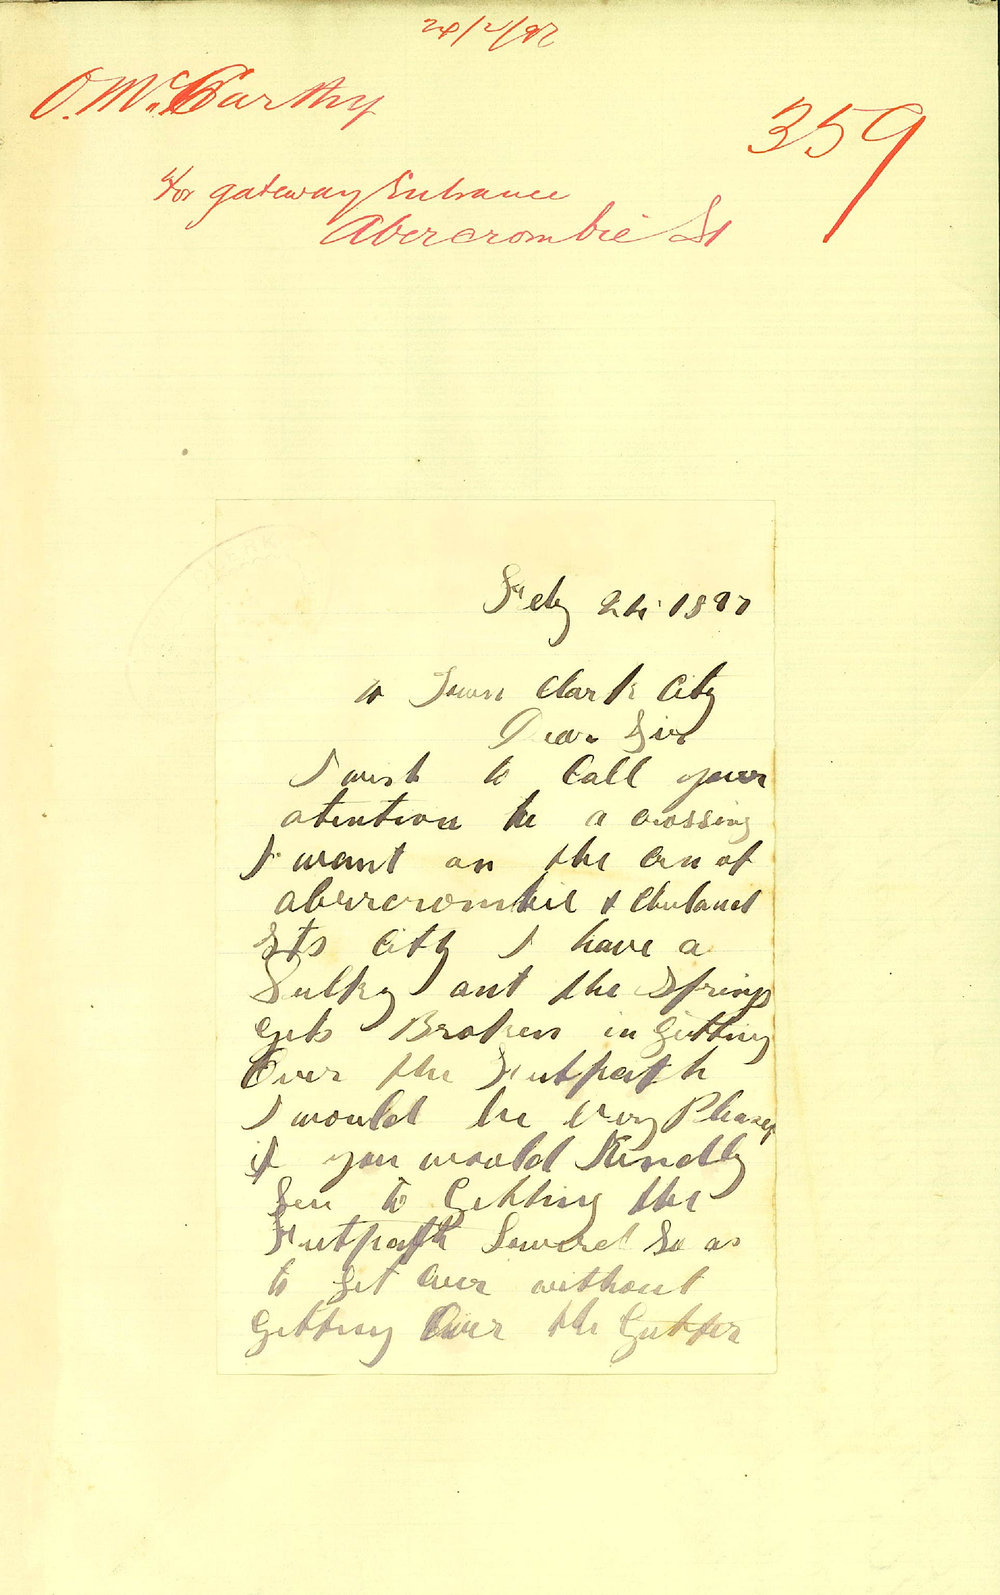 24/2/97
O. McCarthy
359
for gateway Entrance
Abercrombie St
Feby 24 1897
to Town Clark City
Dear Sir
I wish to Call your
atention to a crossing
I want on the Cn of
abercrombie &
Sts City I have a
Sulky ant the Springs
gets Broken in Gitting
Over the Futpath
I would be very Pleased
if you would Kindly
See to Getting the
Futpath Lowered So as
to get over without
Getting Over the Gutter